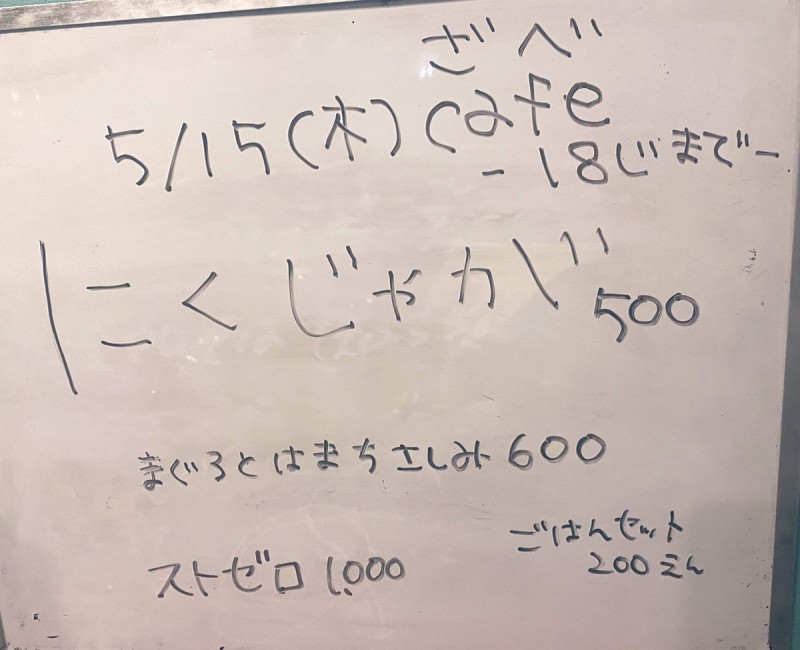 ざべ
5/15(木) Cafe
-18じまで-
にくじゃが 500
まぐろとはまちさしみ 600
ごはんセット
200えん
ストゼロ 1,000